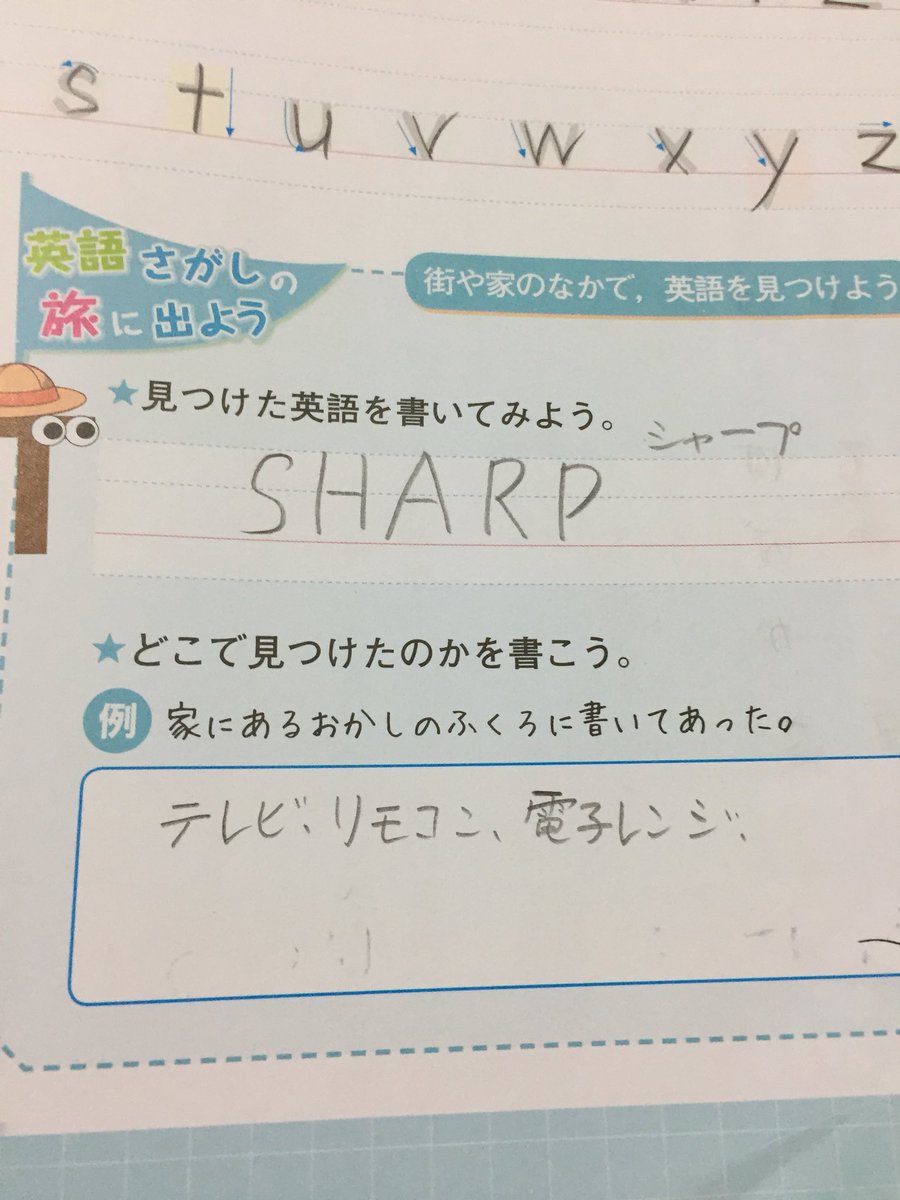 s t u v w x y z
英語さがしの
旅に出よう
街や家のなかで，英語を見つけよう
★見つけた英語を書いてみよう。
シャープ
SHARP
★どこで見つけたのかを書こう。
例 家にあるおかしのふくろに書いてあった。
テレビ、リモコン、電子レンジ、